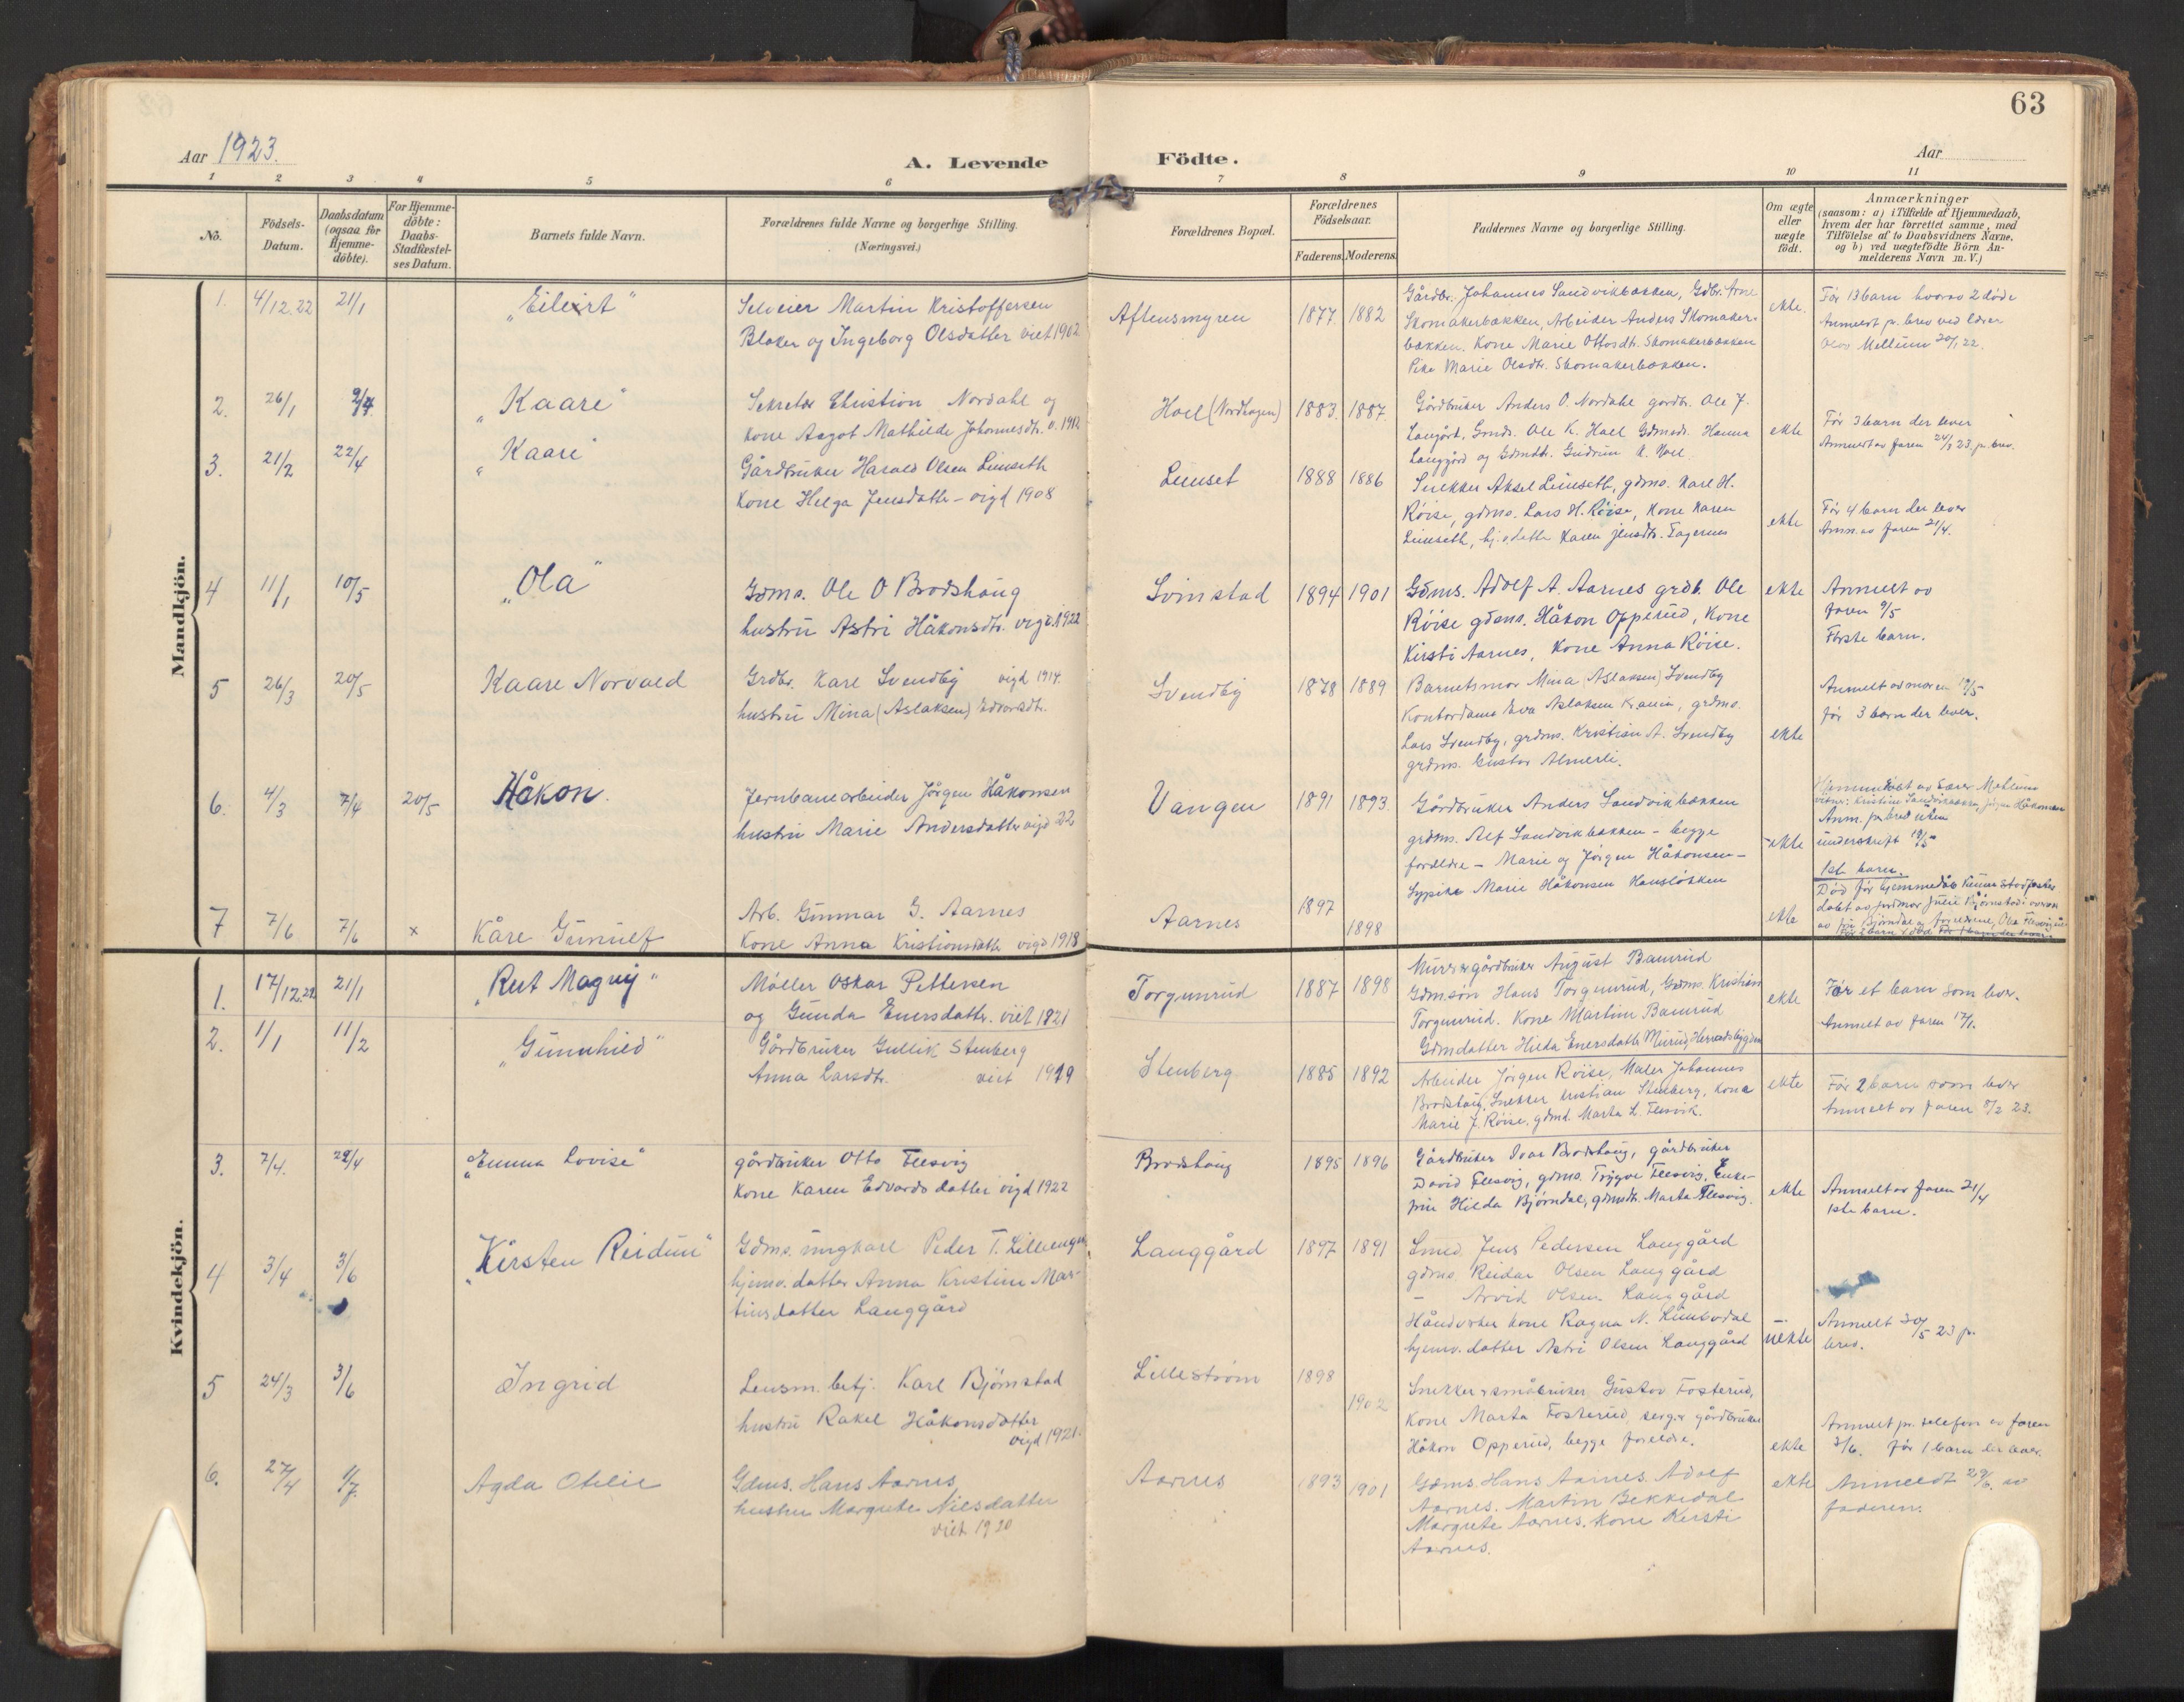 63
Aar 1923.
A. Levende Födte.
Aar
1 2 3 4 5 6 7 8 9 10 11
No.
Födsels-Datum.
Daabsdatum (ogsaa for Hjemme-döbte).
For Hjemme-döbte: Daabs-Stadfæstel-ses Datum.
Barnets fulde Navn.
Forældrenes fulde Navne og borgerlige Stilling.
(Næringsvei.)
Forældrenes Bopæl.
Forældrenes Födselsaar.
Faderens. Moderens.
Faddernes Navne og borgerlige Stilling.
Om ægte eller uægte født.
Anmærkninger
(saasom: a) i Tilfælde af Hjemmedaab,
hvem der har forrettet samme, med
Tilföielse af to Daabsvidners Navne,
og b) ved uægtefödte Börn An-
melderens Navn m. V.)
Mandkjön.
1. 4/12.22 21/1 "Eileirt"
Selveier Martin Kristoffersen
Blaker og Ingeborg Olsdatter viet 1902
Aftensmyren 1877. 1882
Gårdbr. Johannes Sandvikbakken, Gdbr. Arne
Skomakerbækken, Arbeider Anders Skomaker-
bækken. Kone Marie Ottosdtr. Skomakerbækken
Pike Marie Olsdtr. Skomakerbækken.
ekte.
Før 13 barn hvorav 2 døde
Anmeldt pr. brev ved lærer
Olav Mellum 20/1 22.
2. 26/1 2/4. "Kaare"
Sekretær Christian Nordahl og
kone Aagot Mathilde Johannesdtr. v. 1912
Hoel (Nordhagen) 1883. 1887.
Gårdbruker Anders O. Nordahl gardbr. Ole J.
Langård, Gmds. Ole K. Hoel Gdmds. Hanna
Langgård og Gdmdtr. Gudrun K. Hoel.
ekte
Før 3 barn der lever
Anmeldt av faren 24/3 23. p. brev.
3. 21/2 22/4 "Kaare"
Gårdbruker Harald Olsen Linseth
kone Helga Jensdatter - vigd 1908
Linset 1888 1886
Snekker Aksel Linseth, gdms. Karl H.
Röise, gdms. Lars H. Röise, kone Karen
Linseth, hj.v. datter Karen Jensdtr. Fagernes
ekte
Før 4 barn der lever
Anm. av faren 21/4.
4 11/1 10/5 "Ola"
Gdms. Ole O Brodshaug
hustru Astri Håkonsdtr. vigd 1922
Svinstad 1894 1901
Gdms. Adolf A. Aarnes grdb. Ole
Röise gdsms. Håkon Opperud, Kone
Kirsti Aarnes, Kone Anna Röise.
ekte
Anmelt av
faren 9/5
Første barn.
5 26/3 20/5 Kaare Norvald
Grdbr. Karl Svendby vigd 1914.
hustru Mina (Aslaksen) Edvardsdtr.
Svendby 1878 1889
Barnets mor Mina (Aslaksen) Svendby
Kontordame Eva Aslaksen Krania, grdms.
Lars Svendby, grdms. Kristian A. Svendby
grdms. Gustav Almerli.
ekte
Anmelt av moren 19/5
før 3 barn der lever.
6. 4/3 7/4 20/5 Håkon.
Jernbanearbeider Jörgen Håkonsen
hustru Marie Andersdatter vigd 22
Vangen 1891 1893.
Gårdbruker Anders Sandvikbakken
grdms. Alf Sandvikbakken - begge
foreldre - Marie og Jörgen Håkonsen -
Sypike Marie Håkonsen Hansløkken
ekte
Hjemmedøbt av lærer Mellum
vitner: Kristine Sandvikbakken, Jörgen Håkonsen
Anm. pr brev uten
underskrift 19/5
1ste barn.
7 7/6 7/6 x Kåre Gunulf
Arb. Gunnar G. Aarnes
Kone Anna Kristiansdatter vigd 1918
Aarnes 1897 1898
ekte
Død før hjemmedåb kunne stadfestes
døbt av jordmor Julie Bjørnstad
Kvindekjön.
1. 17/12.22 21/1 "Rut Magny"
Møller Oskar Pettersen
og Gunda Enersdatter. viet 1921
Torgunrud 1887 1898
Murer og gårdbruker August Bamrud
Gdmsøn Hans Torgunrud, Gdms. Kristian
Torgunrud. Kone Martine Bamrud
Gdmdatter Hilda Enersdatter Murud, Herradsbygden
ekte
Før et barn som lever.
Anmelt av faren 17/1.
2. 1/1 11/2 "Gunnhild"
Gårdbruker Gullik Stenberg
Anna Larsdtr. viet 1919
Stenberg 1885 1892
Arbeider Jörgen Röise, Maler Johannes
Brodshaug, Snekker Kristian Stenberg, Kone
Marie J. Röise, gdmd. Marta L. Flesvik.
ekte
Før 2 barn som lever
Anmelt av faren 8/2 23.
3. 7/4. 22/4 "Emma Lovise"
gårdbruker Otto Flesvig
Kone Karen Edvardsdatter vigd 1922
Brodshaug 1895 1896
Gårdbruker Ivar Brodshaug, gårdbruker
David Flesvig, gdms. Trygve Flesvig, Enke-
fru Hilda Björndal, gdmdtr. Marta Flesvig.
ekte
Anmelt av faren 21/4
1ste barn.
4 3/4 3/6 "Kirsten Reidun"
Gdms. ungkarl Peder T. Lilleengen
hjemv. datter Anna Kristine Mar-
tinsdatter Langgård
Langgård 1897 1891
Smed. Jens Pedersen Langgård
gdms. Reidar Olsen Langgård
- Arvid Olsen Langgård
Håndverker kone Ragna N.
hjemv. datter Astri Olsen Langgård
uekte
Anmelt 30/5 23 p.
brev.
5 24/3 3/6 Ingrid
Lensm. betj. Karl Bjørnstad
hustru Rakel Håkonsdatter
vigd 1921.
Lillestrøm 1898 1902
Snekker & småbruker Gustav Fosterud,
Kone Marta Fosterud, gårdbruker
Håkon Opperud, begge foreldre.
ekte
Anmelt pr. telefon av faren
3/6. før 1 barn der lever.
6. 27/4 1/7. Agda Otelie
Gdms. Hans Aarnes
hustru Margrete Nilsdatter
viet 1920
Aarnes 1893 1901
Gdms. Hans Aarnes. Adolf
Aarnes. Martin Bekkedal
Margrete Aarnes. Kone Kirsti
Aarnes.
ekte
Anmeldt 29/6. av
faderen.